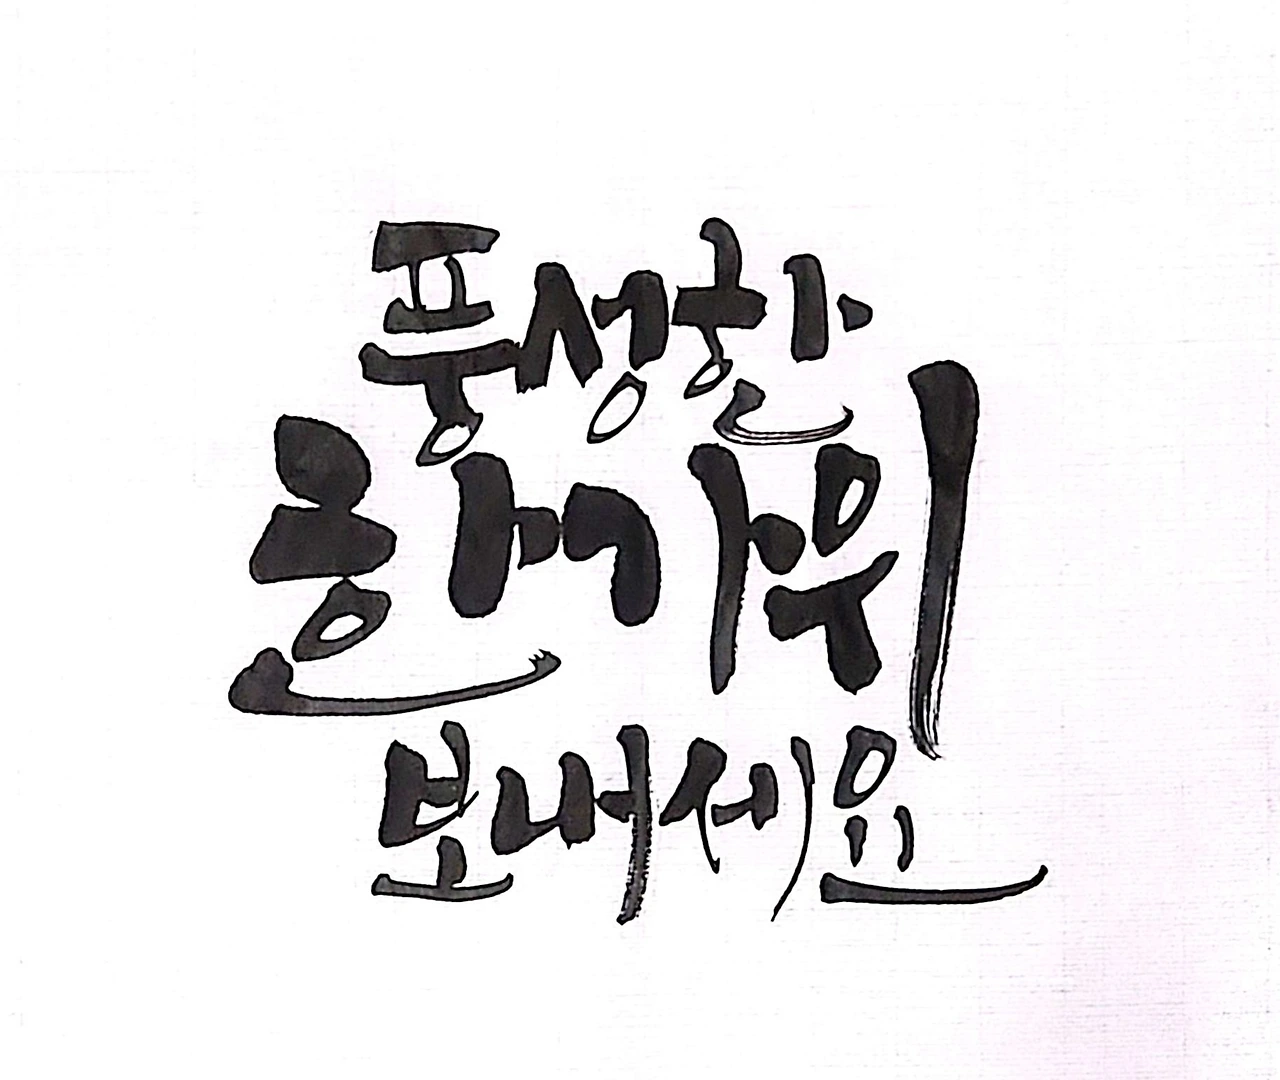 풍성한
한가위
보내세요